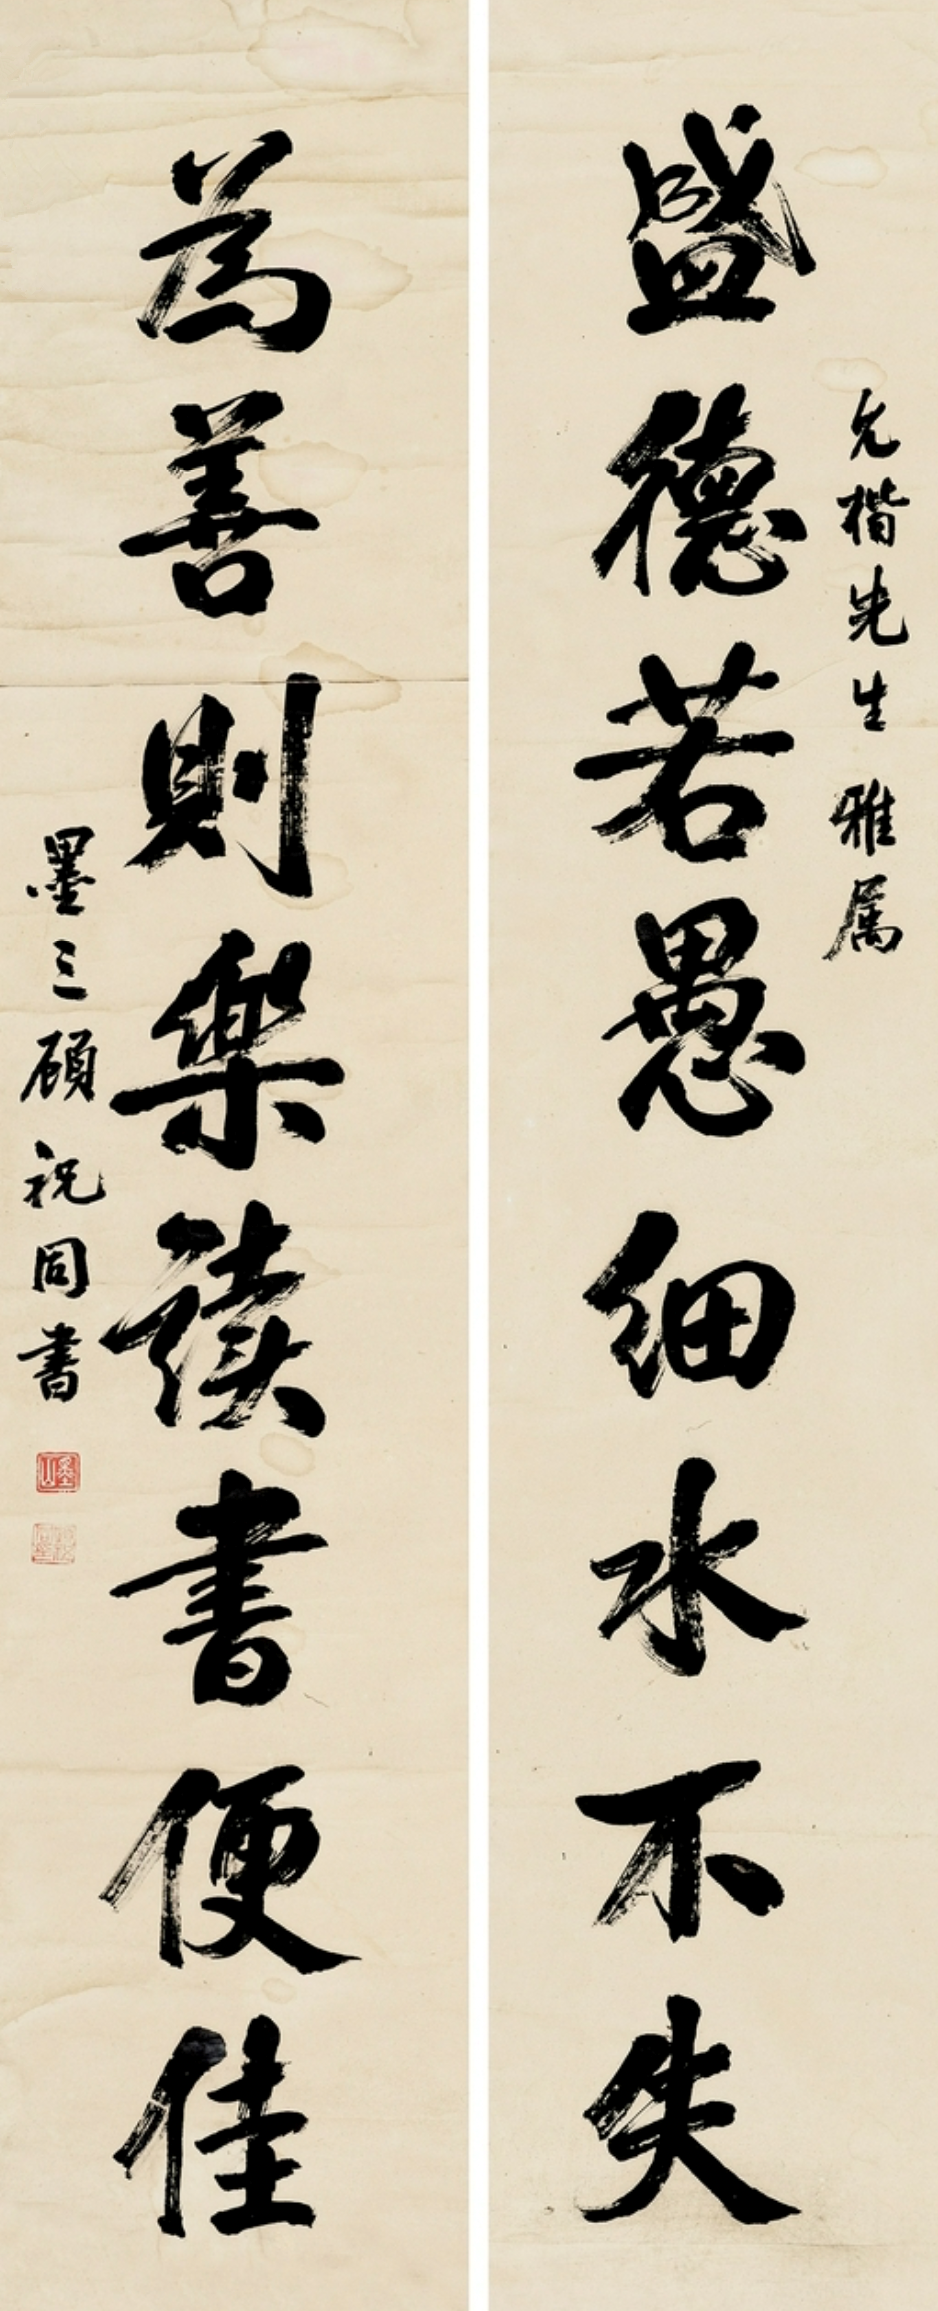 允楷先生雅属
盛德若愚細水不失
為善則樂读書便佳
墨三顧祝同書